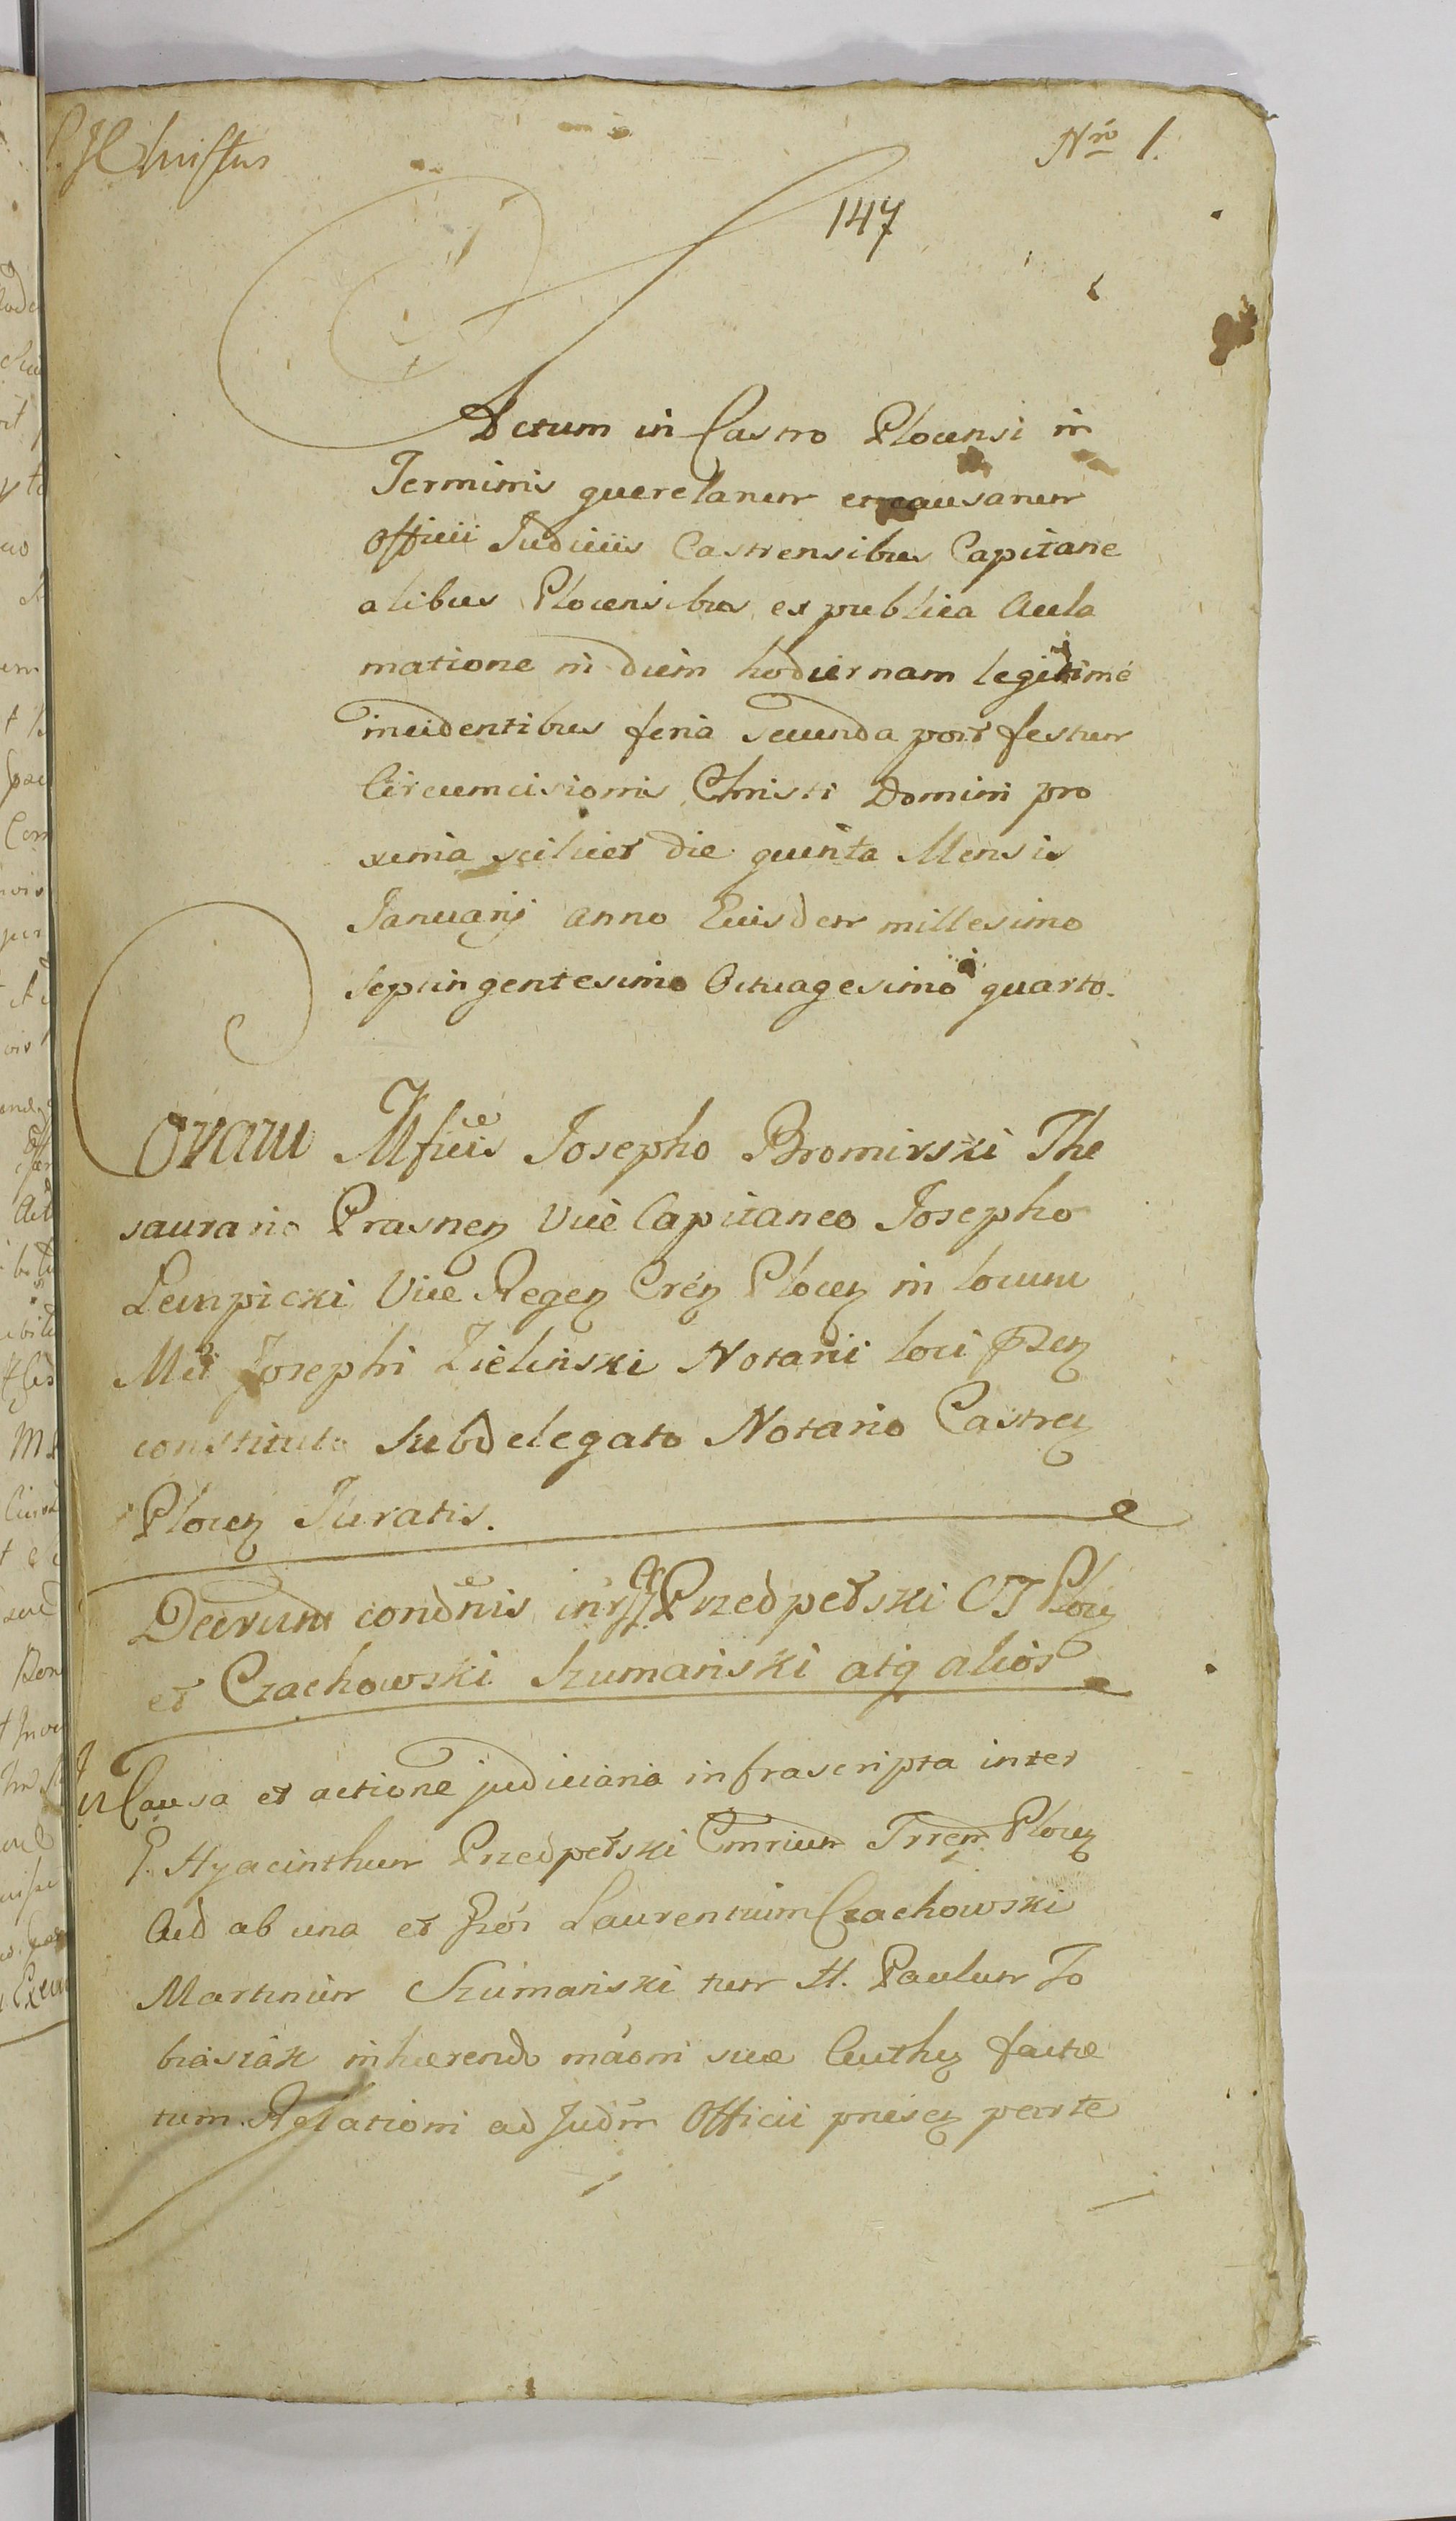 Nro 1.
147
Actum in Castro Plocensi in
Terminis querelarum et causarum
Officii Judiciis Castrensibus Capitane
alibus Plocensibus ex publica Accla
matione in diem hodiernam legitimé
incidentibus feria secunda post festum
Circumcisionis Christi Domini pro
xima scilicet die quinta Mensis
Januarij anno Eiusdem millesimo
septingentesimo Octuagesimo quarto.
Coram Mficis Josepho Bromirski The
saurario Prasnen Vice Capitaneo Josepho
Lempicki Vice Regen Cren Plocen in locum
Mci Josephi Zielinski Notarii loci
constituto Subdelegato Notario Castren
Plocen Juratis.
Decretum condnis inter Przedpełski CT Plocen
et Czachowski Szumański atq alios
In Causa et actione judiciaria infrascripta inter
G. Hyacinthum Przedpełski Cmrium Trrem Plocen
Act ab una et Laurentium Czachowski
Martinum Szumański tum H. Paulum To
biasiak inhærendo suæ Authen factæ
tum Relationi ad Judm Officii pnsen parte